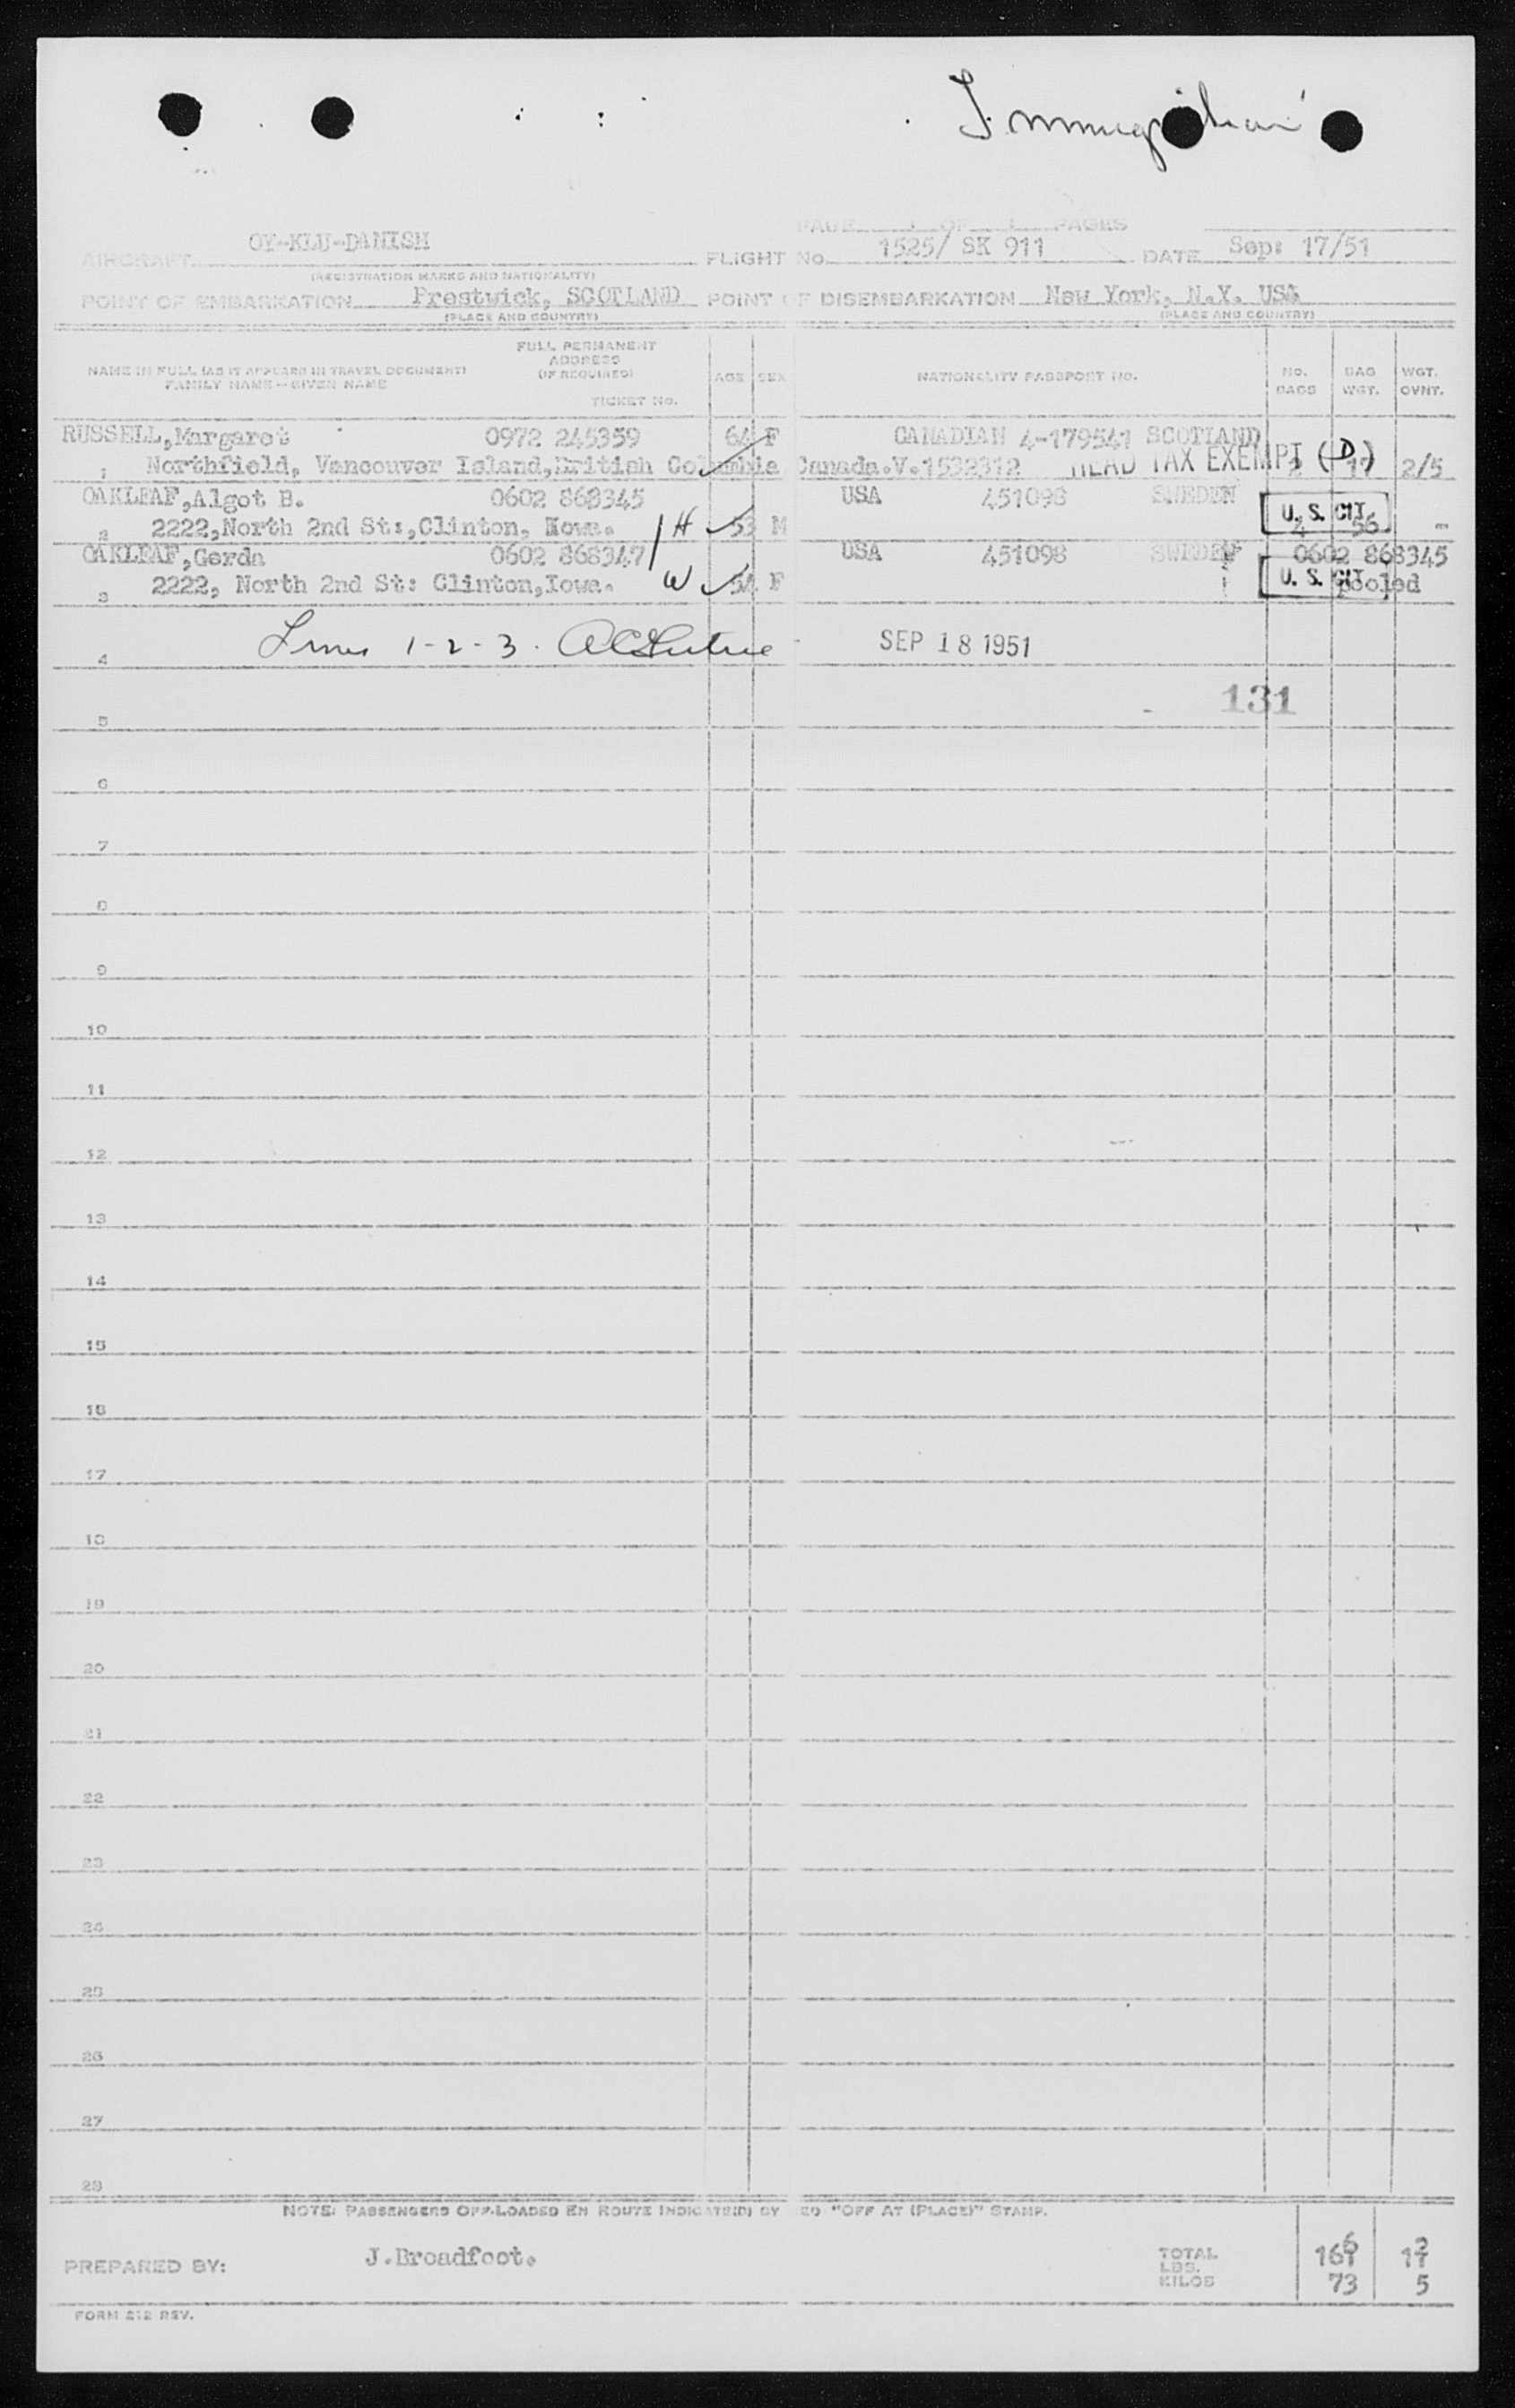 Immigration
PAGE 1 OF 1 PAGES
AIRCRAFT OY-KLU-DANISH FLIGHT No. 1525/ SK 911 DATE Sep: 17/51
(REGISTRATION MARKS AND NATIONALITY)
POINT OF EMBARKATION Prestwick, SCOTLAND POINT OF DISEMBARKATION New York, N.Y. USA
(PLACE AND COUNTRY) (PLACE AND COUNTRY)
NAME IN FULL (AS IT APPEARS IN TRAVEL DOCUMENT) FULL PERMANENT ADDRESS (IF REQUIRED) AGE SEX NATIONALITY PASSPORT No. NO. BAGS BAG WGT. WGT. OVNT.
FAMILY NAME - GIVEN NAME TICKET No.
RUSSELL,Margaret 0972 245359 64 F CANADIAN 4-179541 SCOTLAND
1 Northfield, Vancouver Island,British Columbia Canada.V.1532312 HEAD TAX EXEMPT (D) 2 17 2/5
OAKLEAF,Algot B. 0602 868345 USA 451098 SWEDEN
2 2222,North 2nd St:,Clinton, Iowa. H 53 M U. S. CIT. 4 56 -
OAKLEAF,Gerda 0602 868347 USA 451098 SWEDEN 0602 868345
3 2222, North 2nd St: Clinton,Iowa. W 54 F U. S. CIT. pooled
4 Lines 1-2-3. SEP 18 1951
131
5
6
7
8
9
10
11
12
13
14
15
16
17
18
19
20
21
22
23
24
25
26
27
28
NOTE: PASSENGERS OFF-LOADED EN ROUTE INDICATED BY "OFF AT (PLACE)" STAMP.
PREPARED BY: J.Broadfoot. TOTAL
LBS. 161
KILOS 73 5
FORM 212 REV.